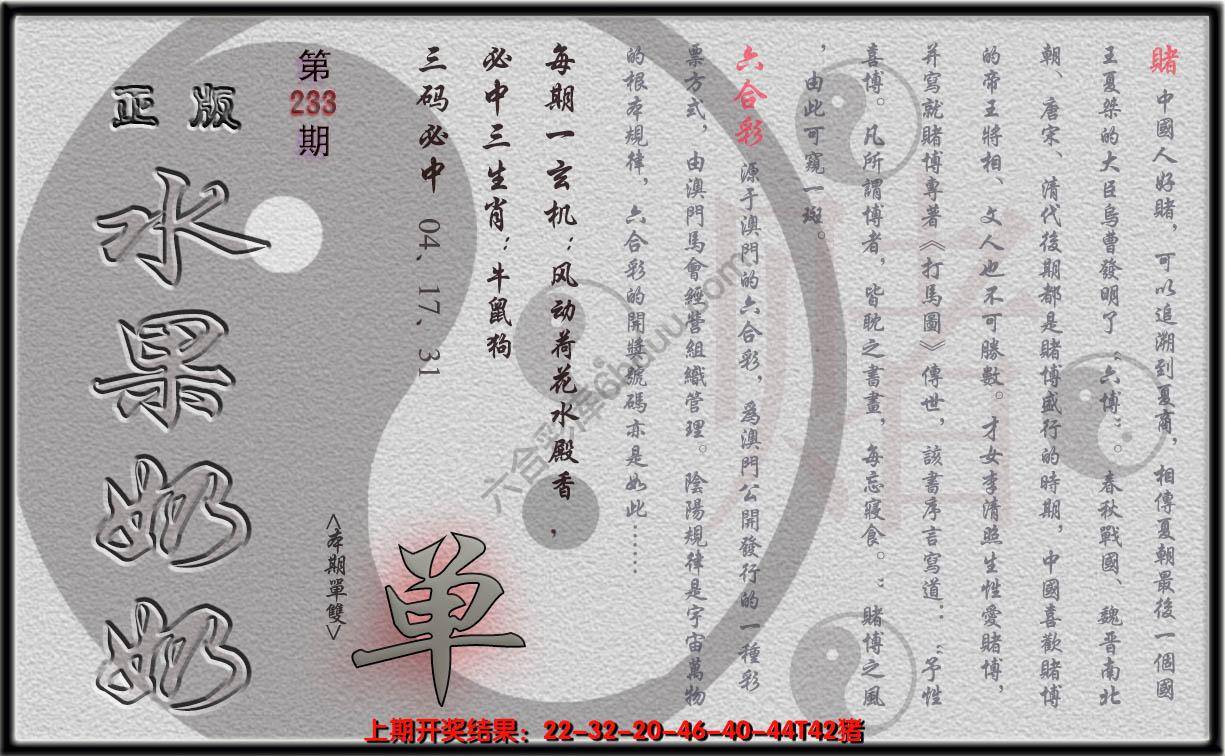 賭 中國人好賭，可以追溯到夏商，相傳夏朝最後一個國
王夏桀的大臣烏曹發明了“六博”。春秋戰國、魏晋南北
朝、唐宋、清代後期都是賭博盛行的時期，中國喜歡賭博
的帝王將相、文人也不可勝數。才女李清照生性愛賭博，
并寫就賭博專著《打馬圖》傳世，該書序言寫道：“予性
喜博。凡所謂博者，皆耽之晝畫，每忘寢食。”賭博之風
，由此可窺一斑。
六合彩 源于澳門的六合彩，爲澳門公開發行的一種彩
票方式，由澳門馬會經營組織管理。陰陽規律是宇宙萬物
的根本規律，六合彩的開獎號碼亦是如此……
每期一玄机：风动荷花水殿香，
必中三生肖：牛鼠狗
三码必中 04、17、31
第
233
期
正版
水果奶奶
<本期單雙>
单
六合彩库6huuu.com
上期开奖结果：22-32-20-46-40-44T42猪